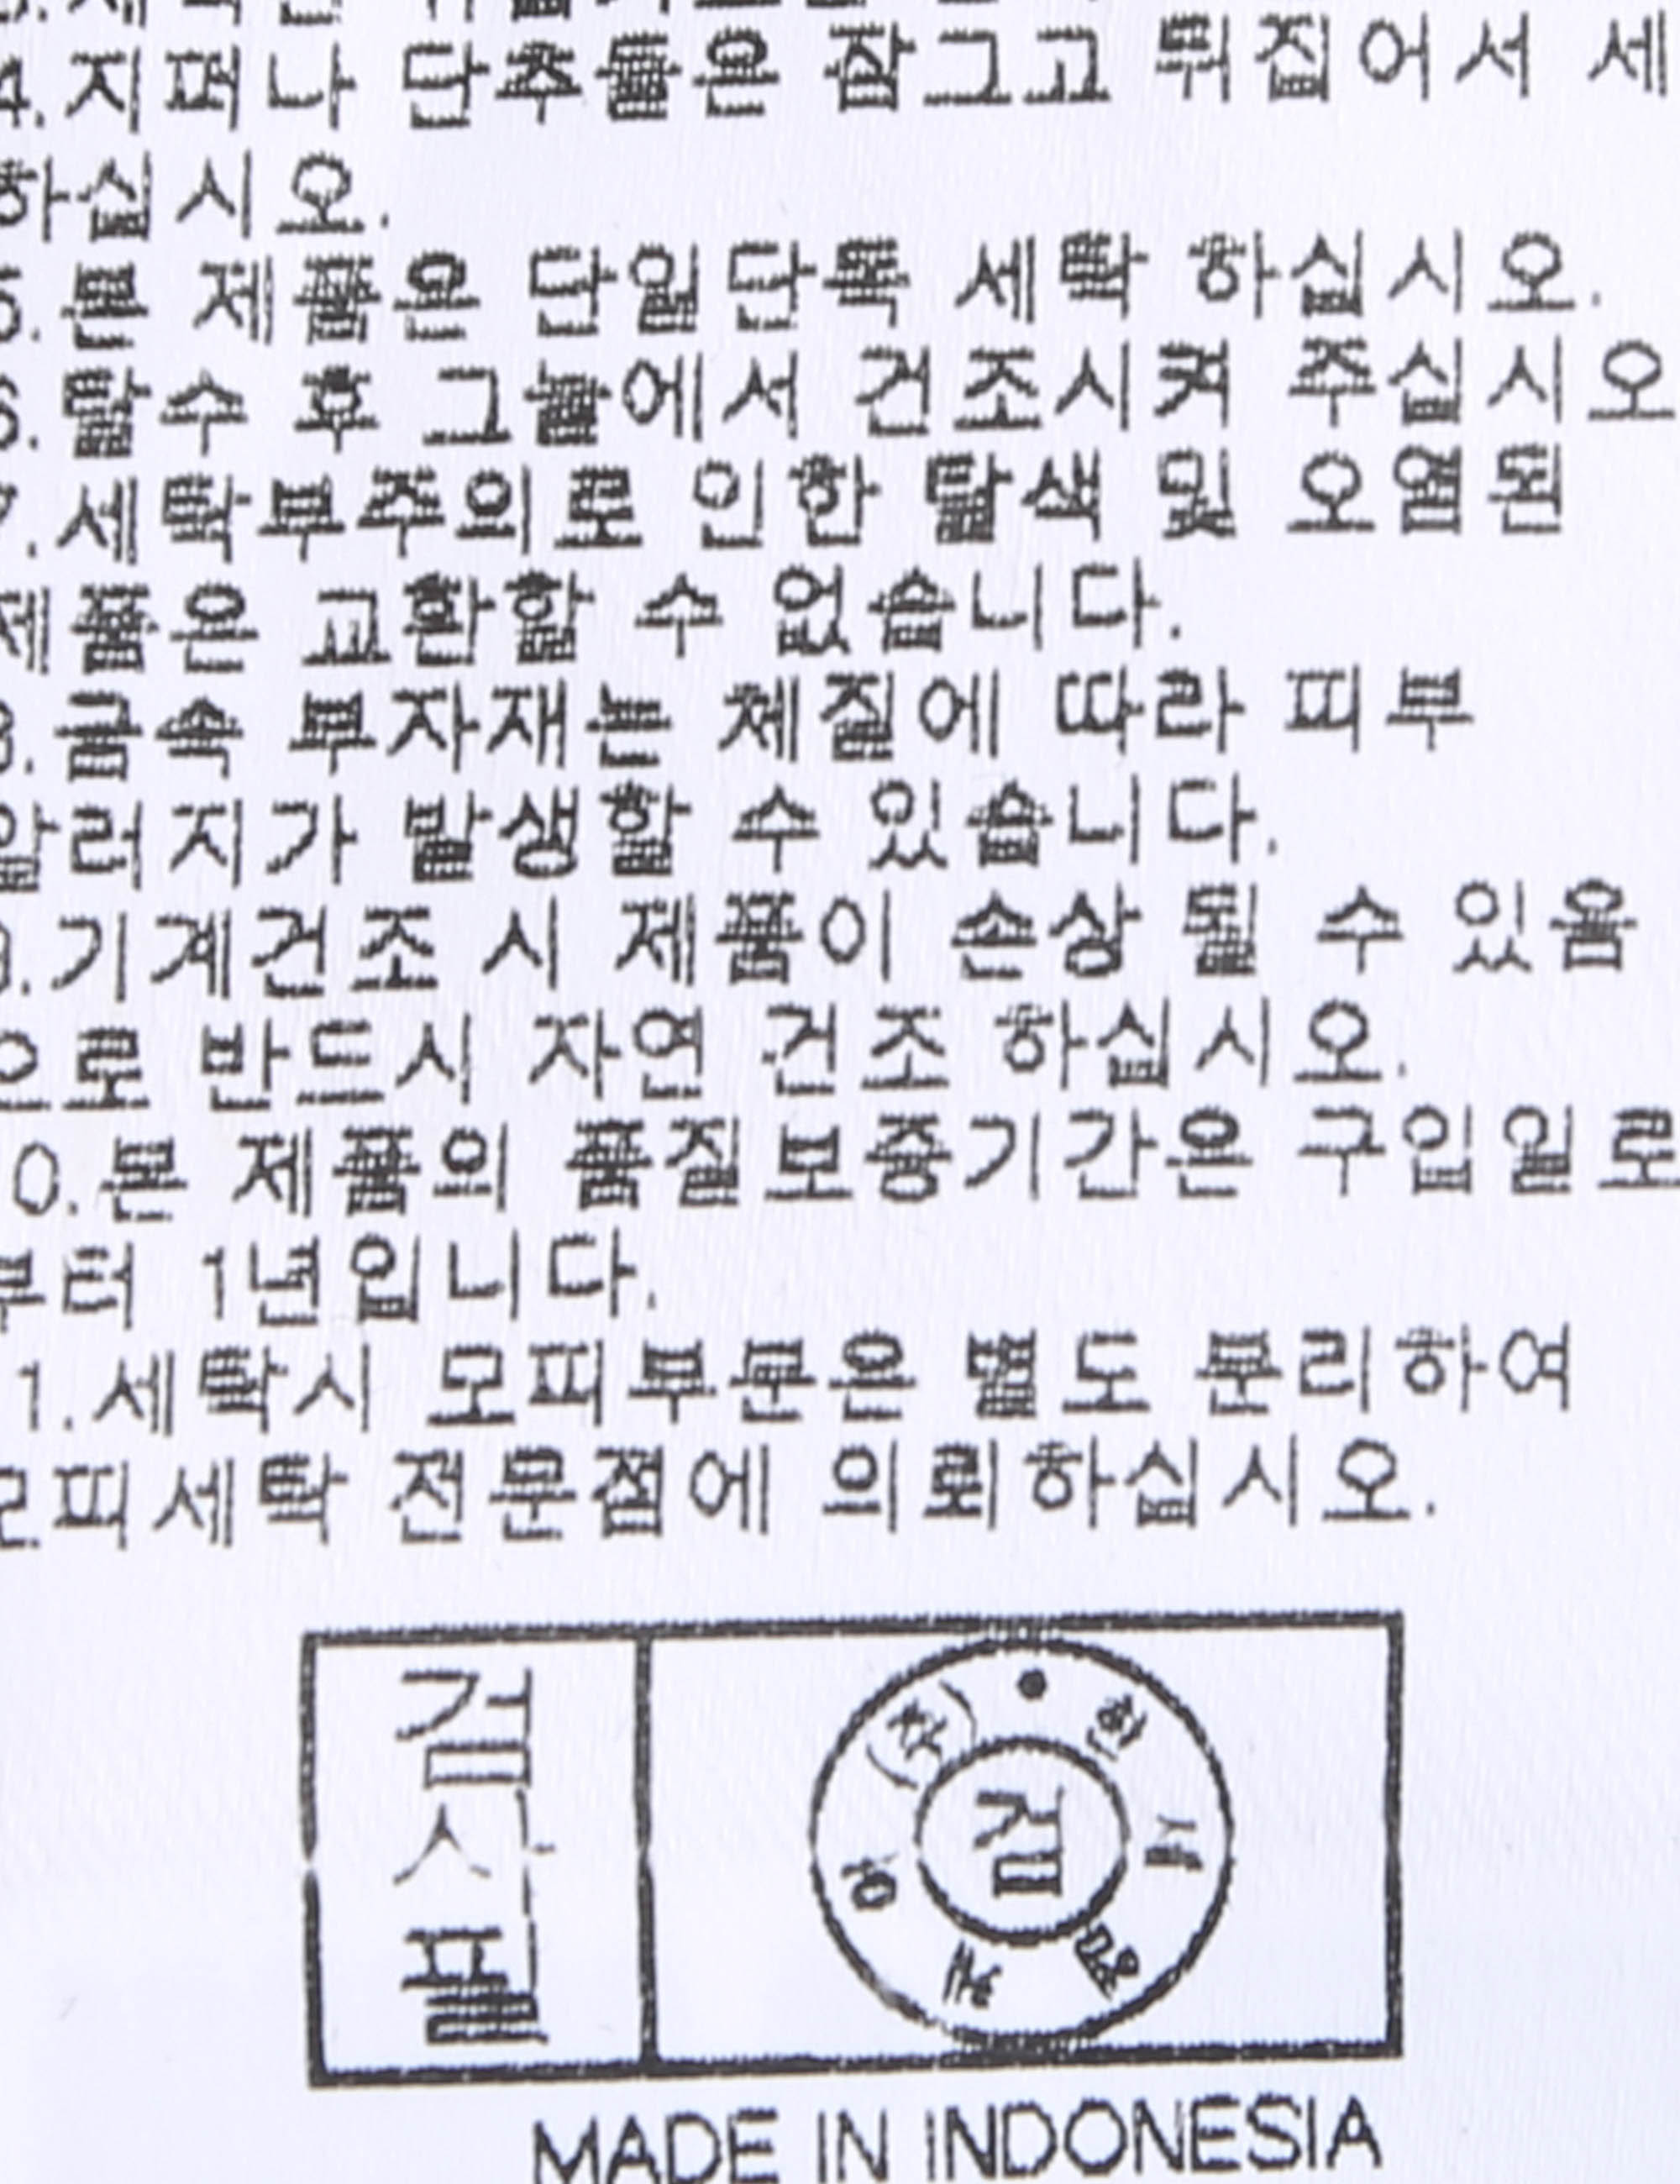 4.지퍼나 단추들은 잠그고 뒤집어서 세
하십시오.
5.본 제품은 단일단독 세탁 하십시오.
6.탈수 후 그늘에서 건조시켜 주십시오
7.세탁부주의로 인한 탈색 및 오염된
제품은 교환할 수 없습니다.
8.금속 부자재는 체질에 따라 피부
알러지가 발생할 수 있습니다.
9.기계건조 시 제품이 손상 될 수 있음
으로 반드시 자연 건조 하십시오.
0.본 제품의 품질보증기간은 구입일로
부터 1년입니다.
1.세탁시 모피부분은 별도 분리하여
모피세탁 전문점에 의뢰하십시오.
검사필
(주)한
검
MADE IN INDONESIA